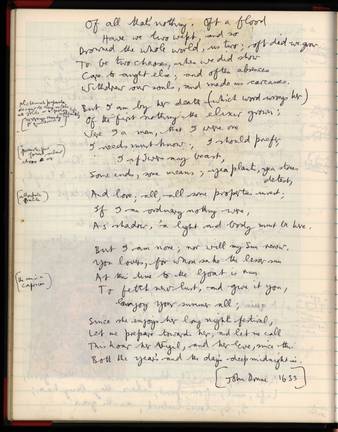 Of all that nothing. Oft a flood
Have we two wept, and so
Drowned the whole world, us two; oft did we grow
To be two chaoses, when we did show
Care to aught else; and often absences
Withdrew our souls, and made us carcases.
But I am by her death (which word wrongs her)
Of the first nothing the elixir grown;
Were I a man, that I were one
I needs must know; I should prefer,
If I were any beast,
Some ends, some means; yea plants, yea stones
detest,
And love; all, all some properties invest;
If I an ordinary nothing were,
As shadow, a light and body must be here.
But I am none; nor will my Sun renew.
You lovers, for whose sake the lesser sun
At this time to the Goat is run
To fetch new lust, and give it you,
Enjoy your summer all;
Since she enjoys her long night's festival,
Let me prepare towards her, and let me call
This hour her Vigil, and her Eve, since this
Both the year's and the day's deep midnight is.
[John Donne 1633]
Capricorn